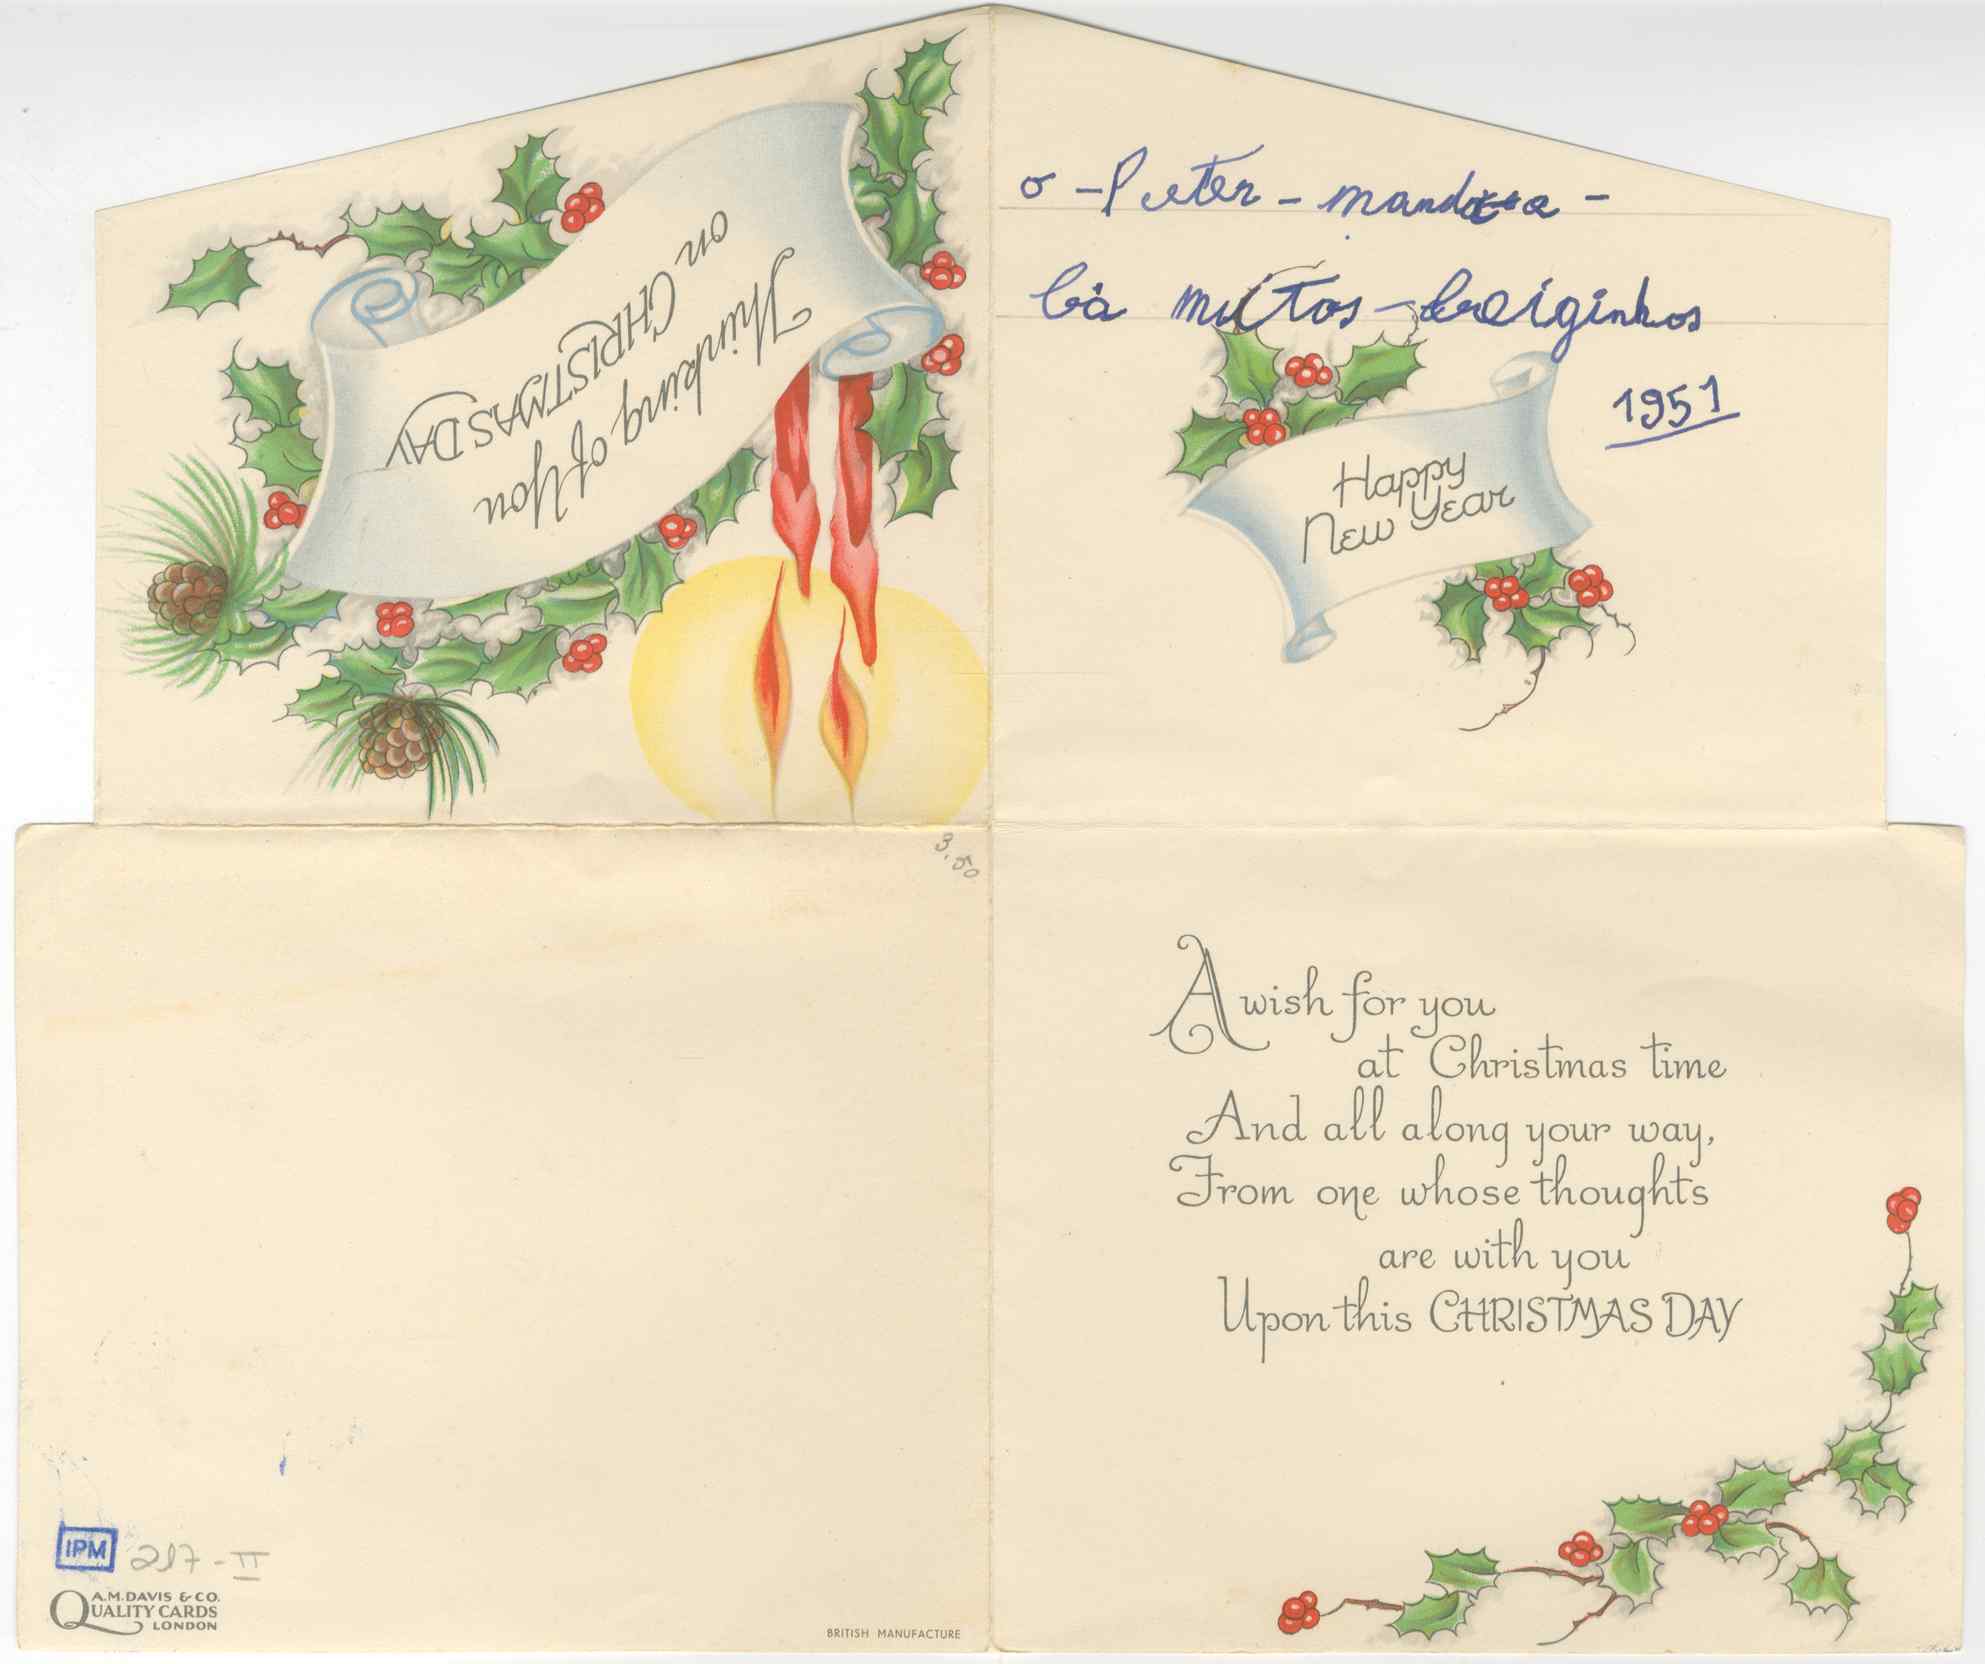 Thinking of You
on CHRISTMAS DAY
o - Peter - manda-a -
bà muitos - breiginhos
1951
Happy
New Year
3.50
A wish for you
at Christmas time
And all along your way,
From one whose thoughts
are with you
Upon this CHRISTMAS DAY
IPM 217-II
A.M. DAVIS & CO.
QUALITY CARDS
LONDON
BRITISH MANUFACTURE